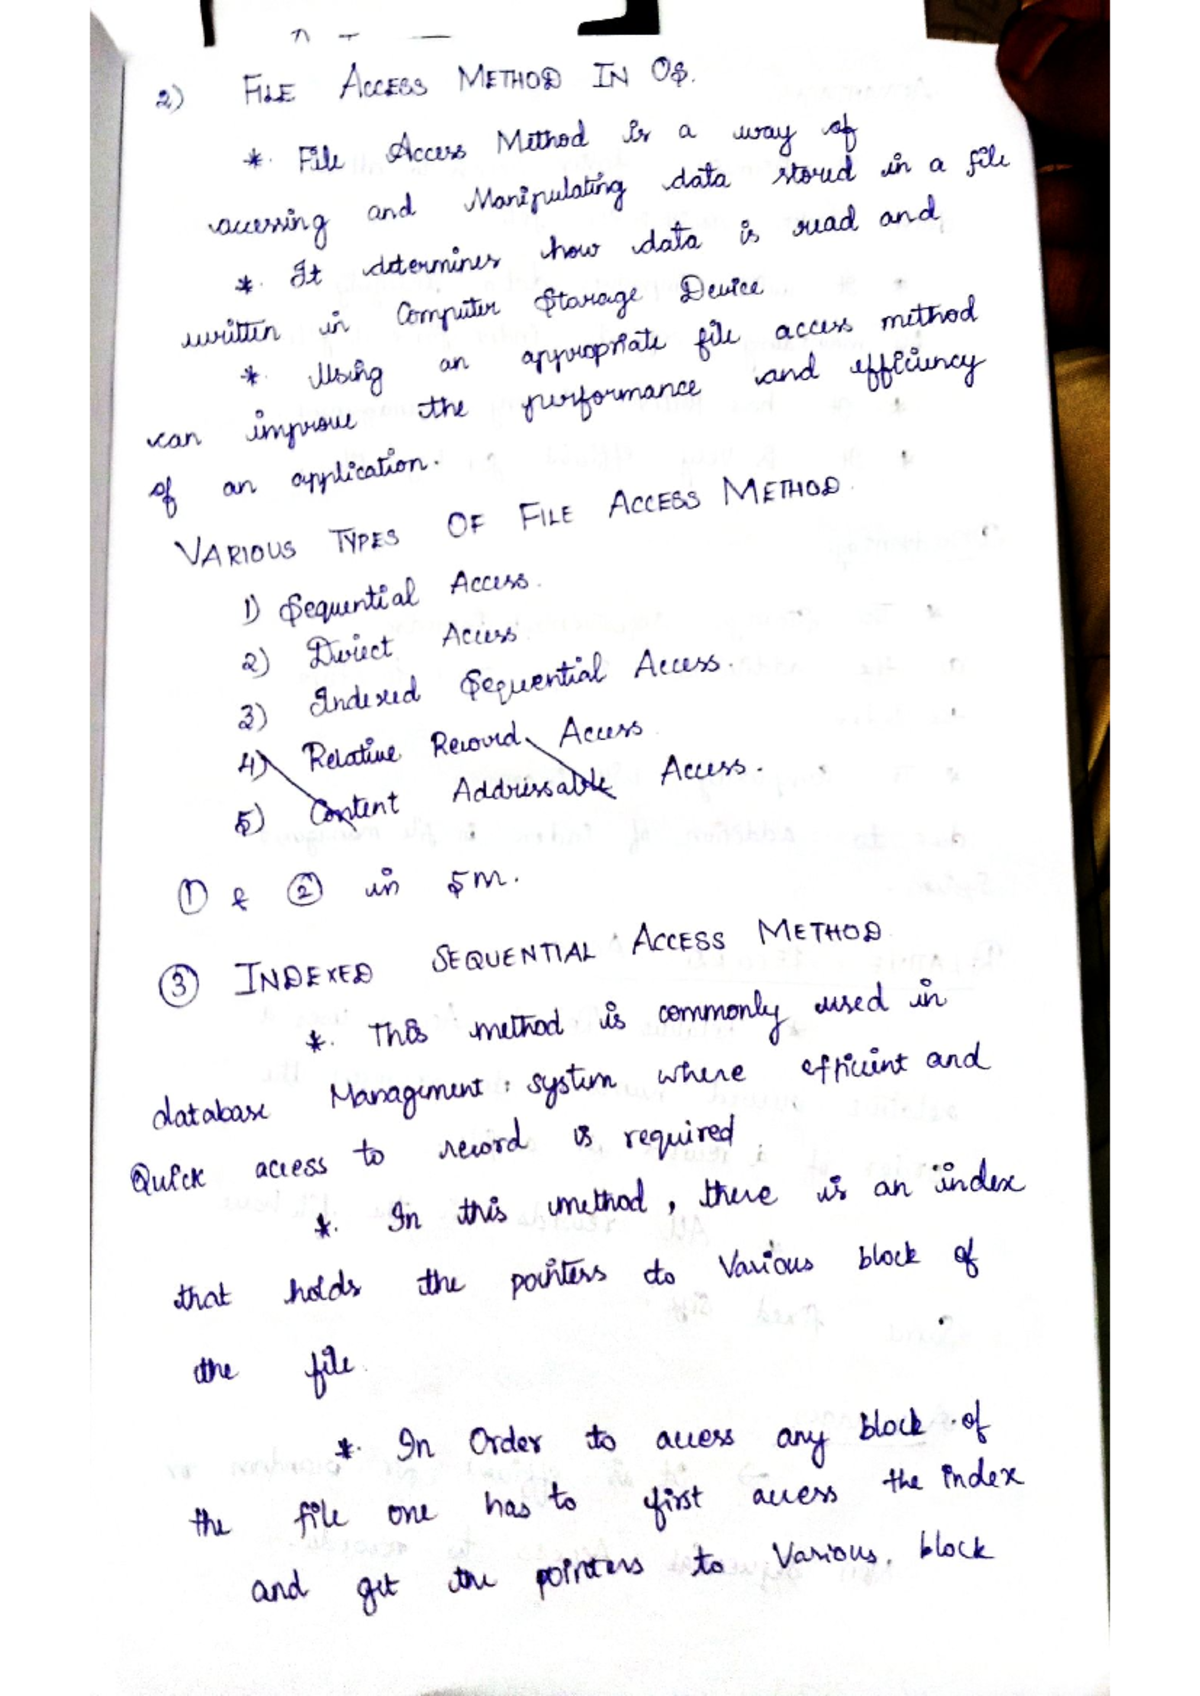 2) FILE ACCESS METHOD IN OS.
*. File Access Method is a way of
accessing and Manipulating data stored in a file
*. It determines how data is read and
written in Computer Storage Device
*. Using an appropriate file access method
can improve the performance and efficiency
of an application.
VARIOUS TYPES OF FILE ACCESS METHOD.
1) Sequential Access.
2) Direct Access
3) Indexed Sequential Access.
4) Relative Record Access.
5) Content Addressable Access.
① & ② in 5m.
③ INDEXED SEQUENTIAL ACCESS METHOD
*. This method is commonly used in
database Management system where efficient and
Quick access to record is required
*. In this method, there is an index
that holds the pointers to Various block of
the file.
*. In Order to access any block of
the file one has to first access the index
and get the pointers to Various block